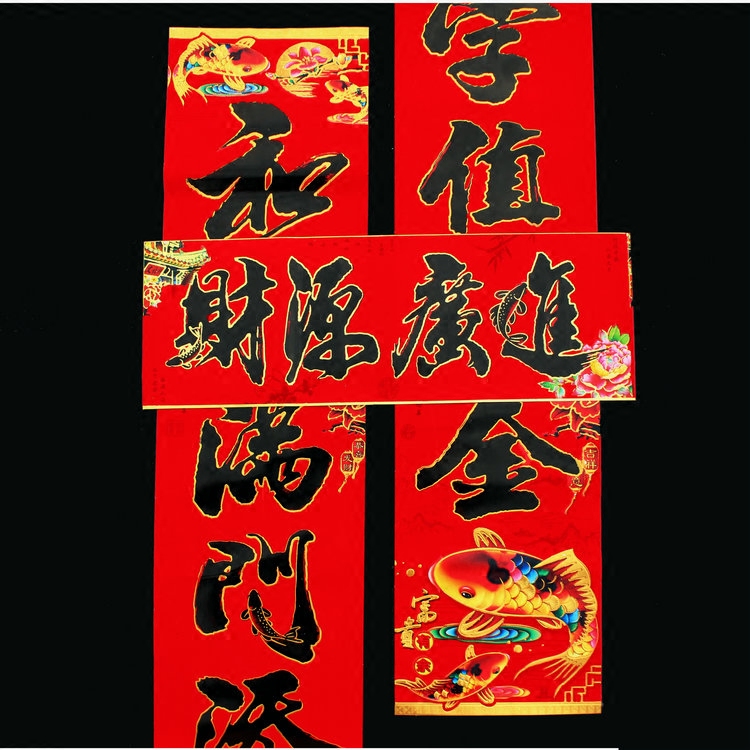 財源廣進
字值
金
和
满門添
富貴
吉祥